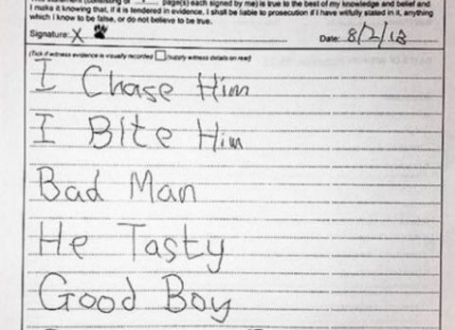 page(s) each signed by me) is true to the best of my knowledge and belief and
I make it knowing that, if it is tendered in evidence, I shall be liable to prosecution if I have wilfully stated in it, anything
which I know to be false, or do not believe to be true.
Signature: X Date: 8/2/13
(Tick if witness evidence is visually recorded (supply witness details on rear)
I Chase Him
I BIte Him
Bad Man
He Tasty
Good Boy